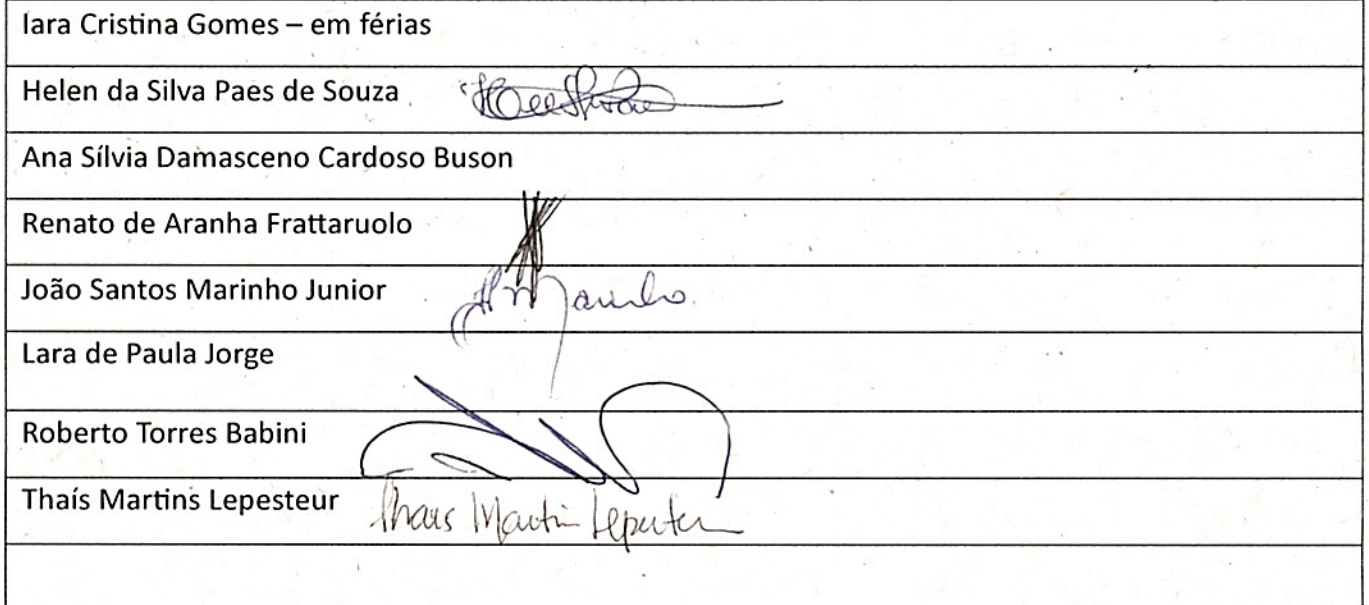 Iara Cristina Gomes – em férias
Helen da Silva Paes de Souza
Ana Sílvia Damasceno Cardoso Buson
Renato de Aranha Frattaruolo
João Santos Marinho Junior Marinho
Lara de Paula Jorge
Roberto Torres Babini
Thaís Martins Lepesteur Thais Martin Lepesteur